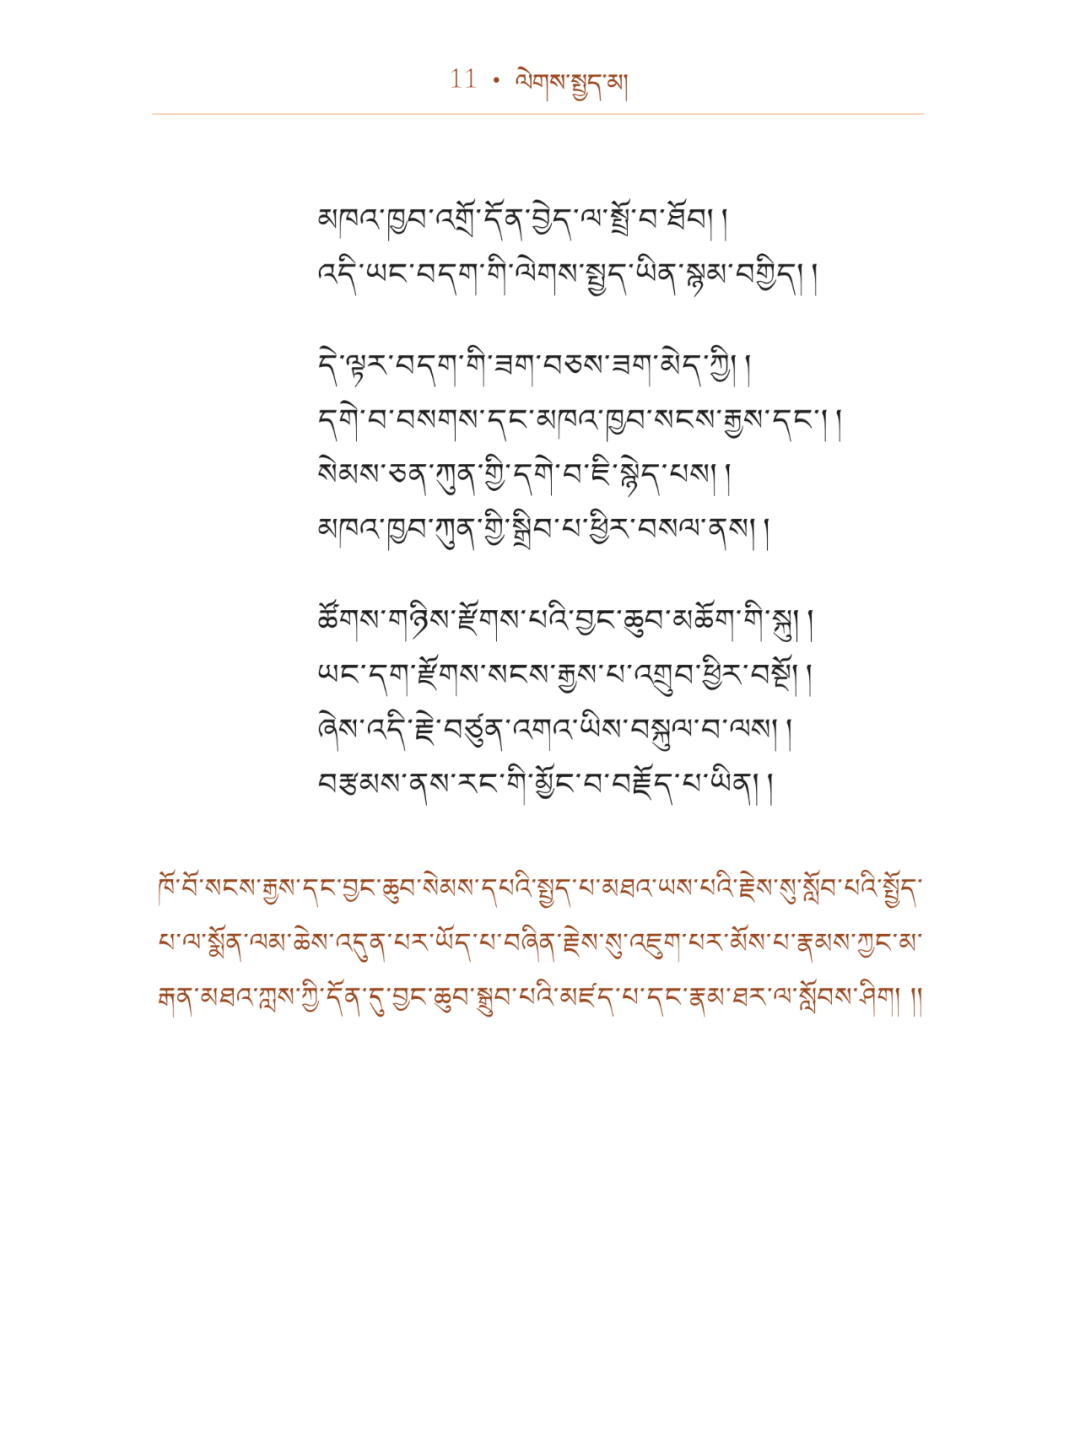 11 • ལེགས་སྤྱད་མ།
མཁའ་ཁྱབ་འགྲོ་དོན་བྱེད་ལ་སྤྲོ་བ་ཐོབ། །
འདི་ཡང་བདག་གི་ལེགས་སྤྱད་ཡིན་སྙམ་བགྱིད། །
དེ་ལྟར་བདག་གི་ཟག་བཅས་ཟག་མེད་ཀྱི། །
དགེ་བ་བསགས་དང་མཁའ་ཁྱབ་སངས་རྒྱས་དང་། །
སེམས་ཅན་ཀུན་གྱི་དགེ་བ་ཇི་སྙེད་པས། །
མཁའ་ཁྱབ་ཀུན་གྱི་སྒྲིབ་པ་ཕྱིར་བསལ་ནས། །
ཚོགས་གཉིས་རྫོགས་པའི་བྱང་ཆུབ་མཆོག་གི་སྐུ། །
ཡང་དག་རྫོགས་སངས་རྒྱས་པ་འགྲུབ་ཕྱིར་བསྔོ། །
ཞེས་འདི་རྗེ་བཙུན་འགའ་ཡིས་བསྐུལ་བ་ལས། །
བརྩམས་ནས་རང་གི་མྱོང་བ་བརྗོད་པ་ཡིན། །
ཁོ་བོ་སངས་རྒྱས་དང་བྱང་ཆུབ་སེམས་དཔའི་སྤྱད་པ་མཐའ་ཡས་པའི་རྗེས་སུ་སློབ་པའི་སྤྱོད་
པ་ལ་སྨོན་ལམ་ཆེས་འདུན་པར་ཡོད་པ་བཞིན་རྗེས་སུ་འཇུག་པར་མོས་པ་རྣམས་ཀྱང་མ་
རྒན་མཐའ་ཀླས་ཀྱི་དོན་དུ་བྱང་ཆུབ་སྒྲུབ་པའི་མཛད་པ་དང་རྣམ་ཐར་ལ་སློབས་ཤིག། །།